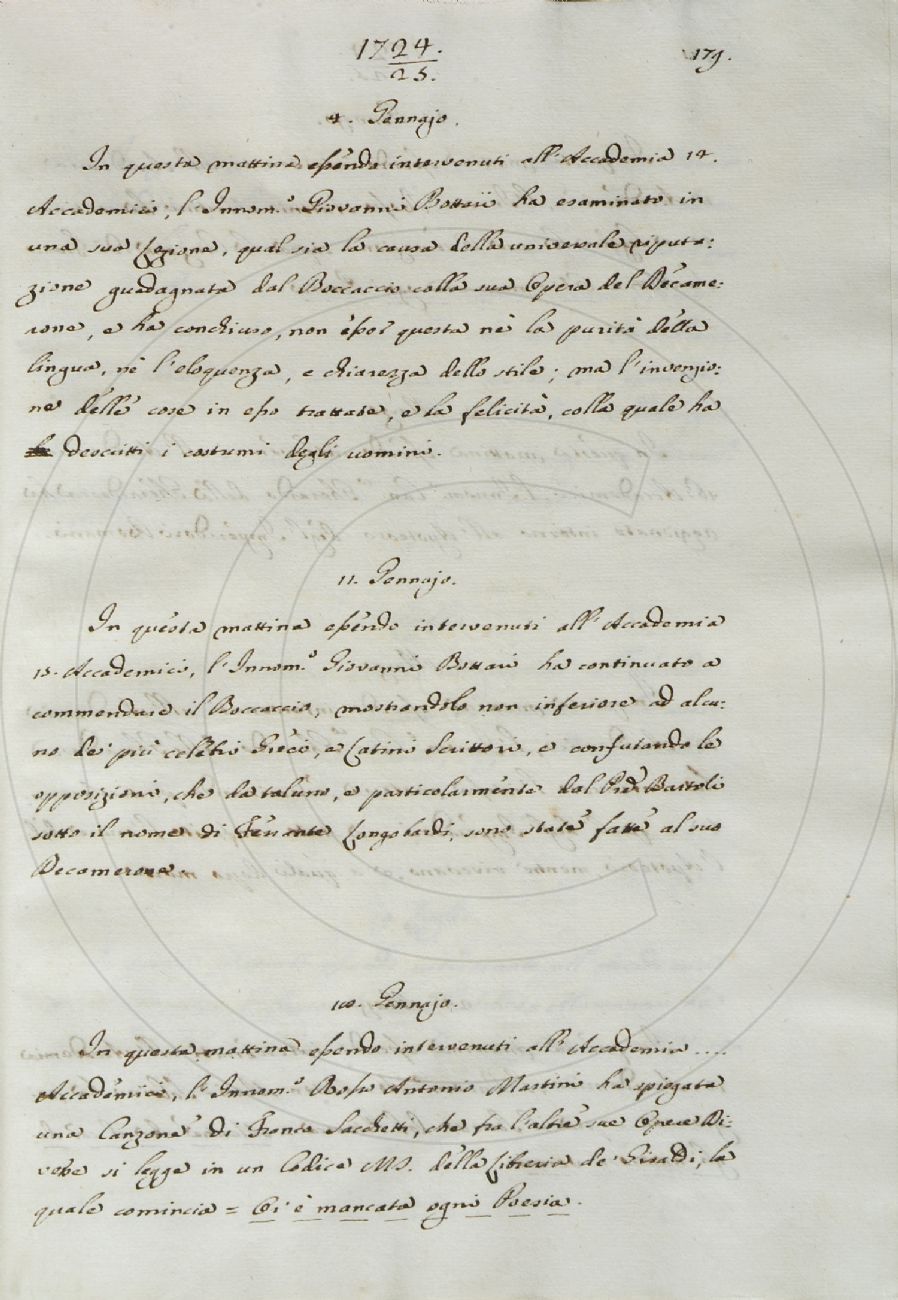 1724.
25.
179.
4. Gennajo.
In questa mattina essendo intervenuti all'Accademia 14.
Accademici, l'Innom.º Giovanni Bottari ha esaminato in
una sua Lezione, qual sia la causa della universale riputa:
zione guadagnata dal Boccaccio colla sua Opera del Decame:
rone, e ha conchiuso, non esser questa nè la purità della
lingua, nè l'eloquenza, e chiarezza dello stile; ma l'invenzio:
ne delle cose in esso trattate, e la felicità, colla quale ha
descritti i costumi degli uomini.
11. Gennajo.
In questa mattina essendo intervenuti all'Accademia
15. Accademici, l'Innom.º Giovanni Bottari ha continuato a
commendare il Boccaccio, mostrandolo non inferiore ad alcu:
no de' più celebri Greci, e Latini Scrittori, e confutando le
opposizioni, che da taluno, e particolarmente dal Pre Bartoli
sotto il nome di Ferrante Longobardi, sono state fatte al suo
Decamerone.
18. Gennajo.
In questa mattina essendo intervenuti all'Accademia ....
Accademici, l'Innom.º Rosso Antonio Martini ha spiegata
una Canzone di Franco Sacchetti, che fra l'altre sue Opere Di:
verse si legge in un Codice MS. della Libreria de' Giraldi, la
quale comincia = Or è mancata ogni Poesia.